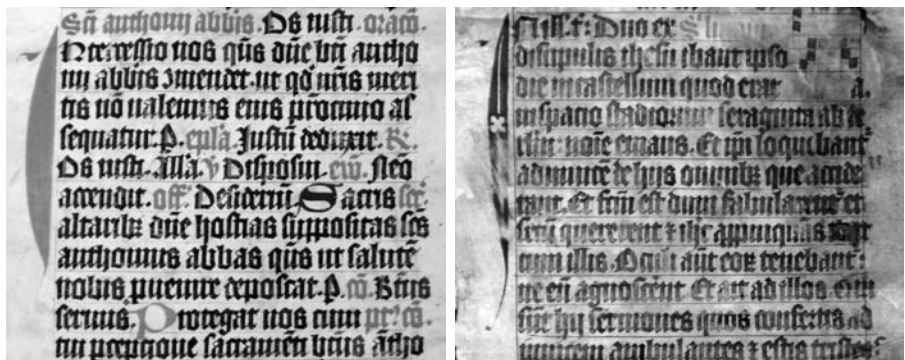 Sci anthonij abbis. Os iusti. oraco.
Intercessio nos qūs dn̄e bt̄i antho
nij abbis ꝯmendet. ut qd̓ nr̄is meri
tis nō ualemus eius pr̄ocinio as
sequatur. P. epl̄a. Iustū deduxit. R.
Os iusti. All̄a. v̄ Disposui. eủ. Nēo
accendit. off. Desideriū. Sacris scē
altaribꝫ dn̄e hostias suppositas scs̄
anthonius abbas qūs ut salutē
nobis puenire deposcat. P. cō. Bt̄us
seruus. Protegat nos cum pr̄. cō.
tui pceptione sacramēti bt̄us ātho
Duo ex
discipulis ihesu ibant ipso
die in castellum quod erat a.
in spacio stadiorum sexaginta ab ie
rl̄m: noīe emaus. Et ip̄i loquebant᷑
adinuicē de hijs omnibꝫ que accide
rant. Et fcm̄ est dum fabularent᷑ et
secū quererent ⁊ ihc̄ appinquās
cum illis. Oculi aūt eoꝝ tenebant᷑:
ne eū agnoscerent. Et ait ad illos. Qui
sūt hij sermones quos confertis ad
inuicem ambulantes ⁊ estis tristes